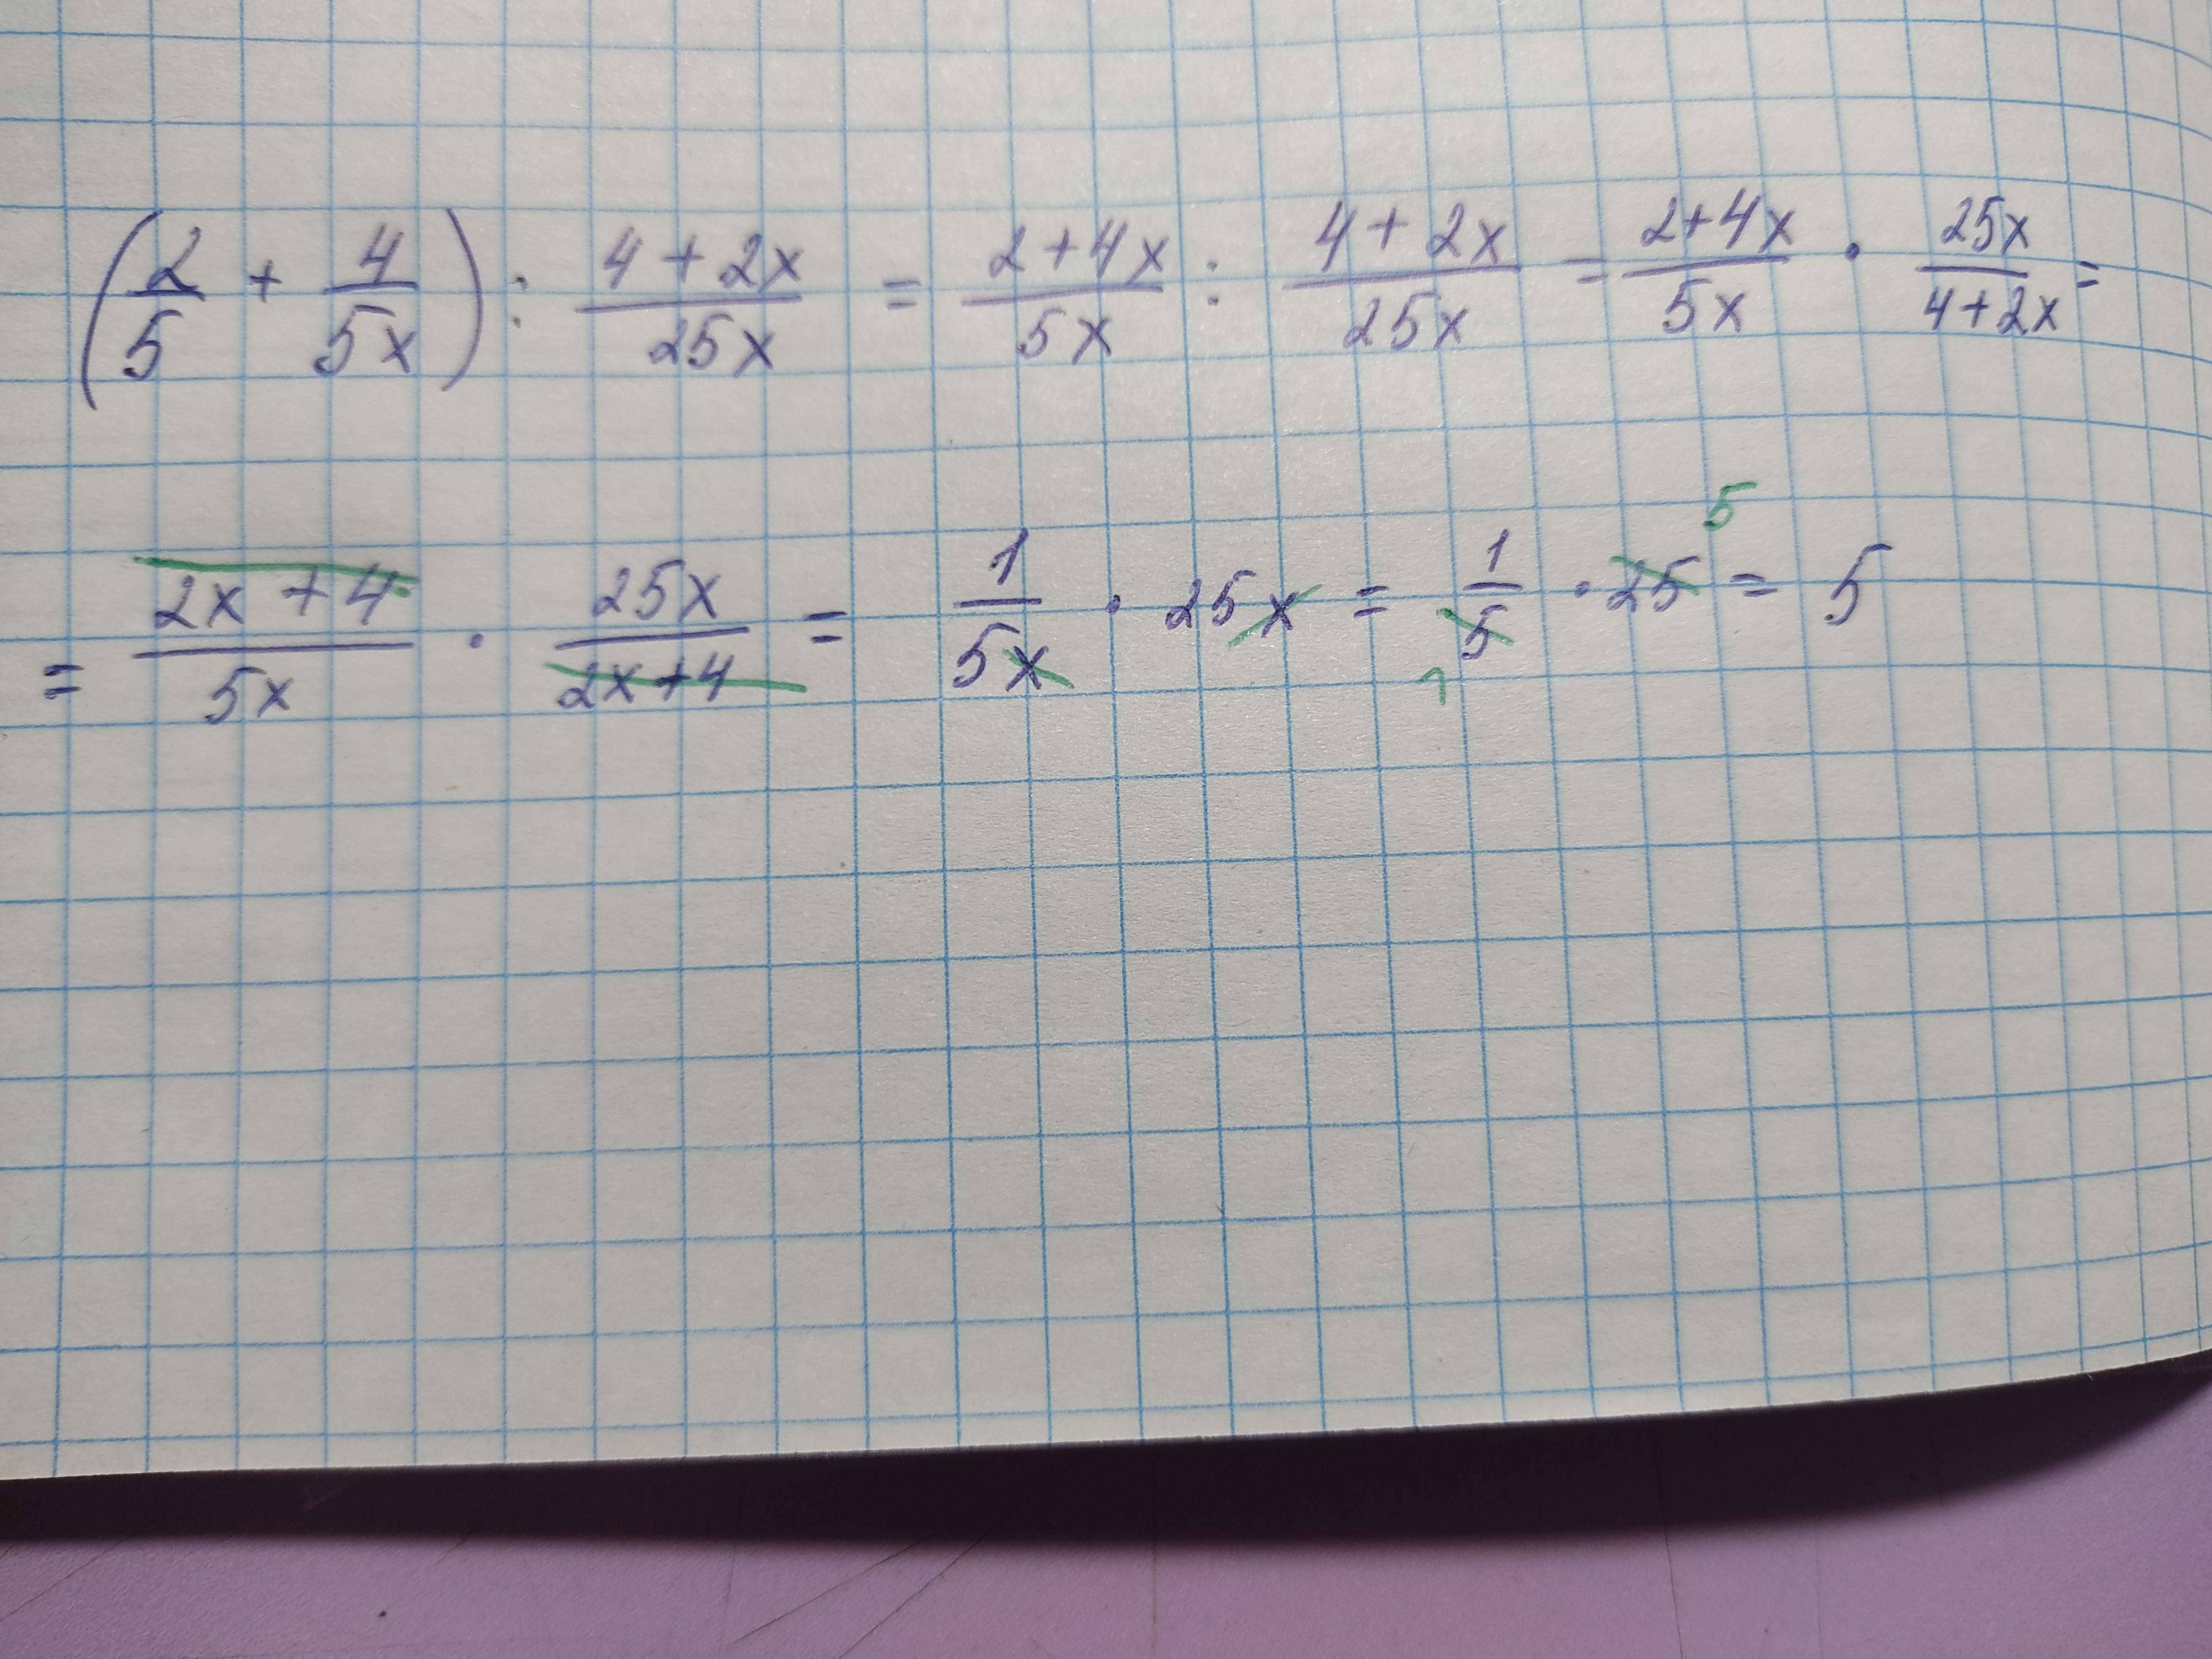 (2/5 + 4/5x) : 4+2x/25x = 2+4x/5x : 4+2x/25x = 2+4x/5x · 25x/4+2x =
= 2x+4/5x · 25x/2x+4 = 1/5x · 25x = 1/5 · 25 = 5
5
1